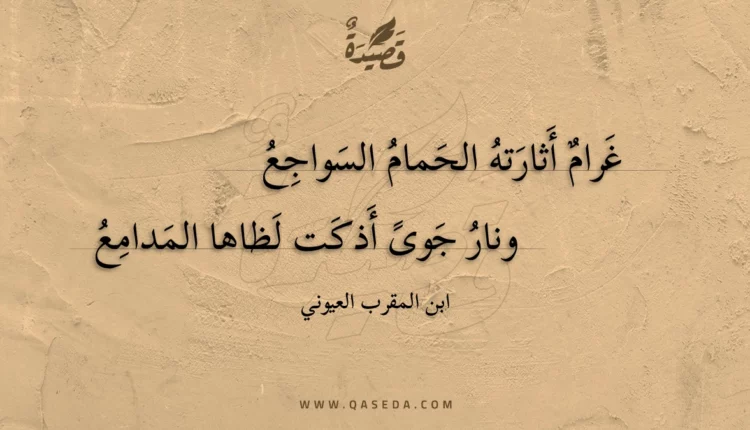 قَصِيدَةٌ
غَرامٌ أَثارَتهُ الحَمامُ السَواجِعُ
ونارُ جَوىً أَذكَت لَظاها المَدامِعُ
ابن المقرب العيوني
WWW.QASEDA.COM